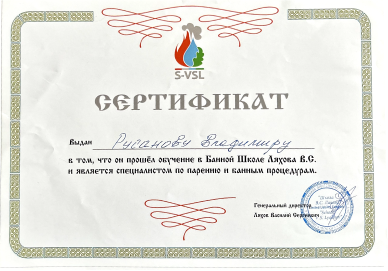 S-VSL
СЕРТИФИКАТ
Выдан Русанову Владимиру
в том, что он прошёл обучение в Банной Школе Ляхова В.С.
и является специалистом по парению и банным процедурам.
Генеральный директор
Ляхов Василий Сергеевич